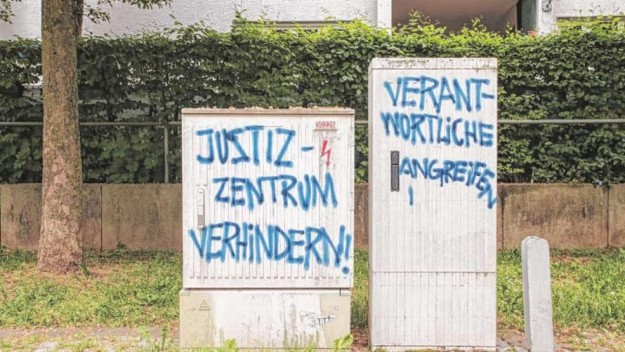 JUSTIZ-
ZENTRUM
VERHINDERN!
VERANT-
WORTLICHE
ANGREIFEN
!